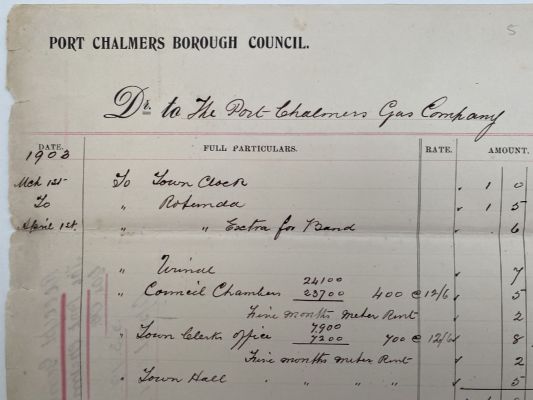 5
PORT CHALMERS BOROUGH COUNCIL.
Dr. to The Port Chalmers Gas Company
DATE. FULL PARTICULARS. RATE. AMOUNT.
1903
Mch 1st To Town Clock 1 0
To " Rotunda 1 5
April 1st. " " Exctra for Band 6
" Urinal 7
24100
" Council Chambers 23700 400 @ 12/6 5
Five months meter Rent 2
7900
" Town Clerks office 7200 700 @ 12/6 8
Five months meter Rent 2
" Town Hall " " " " 5